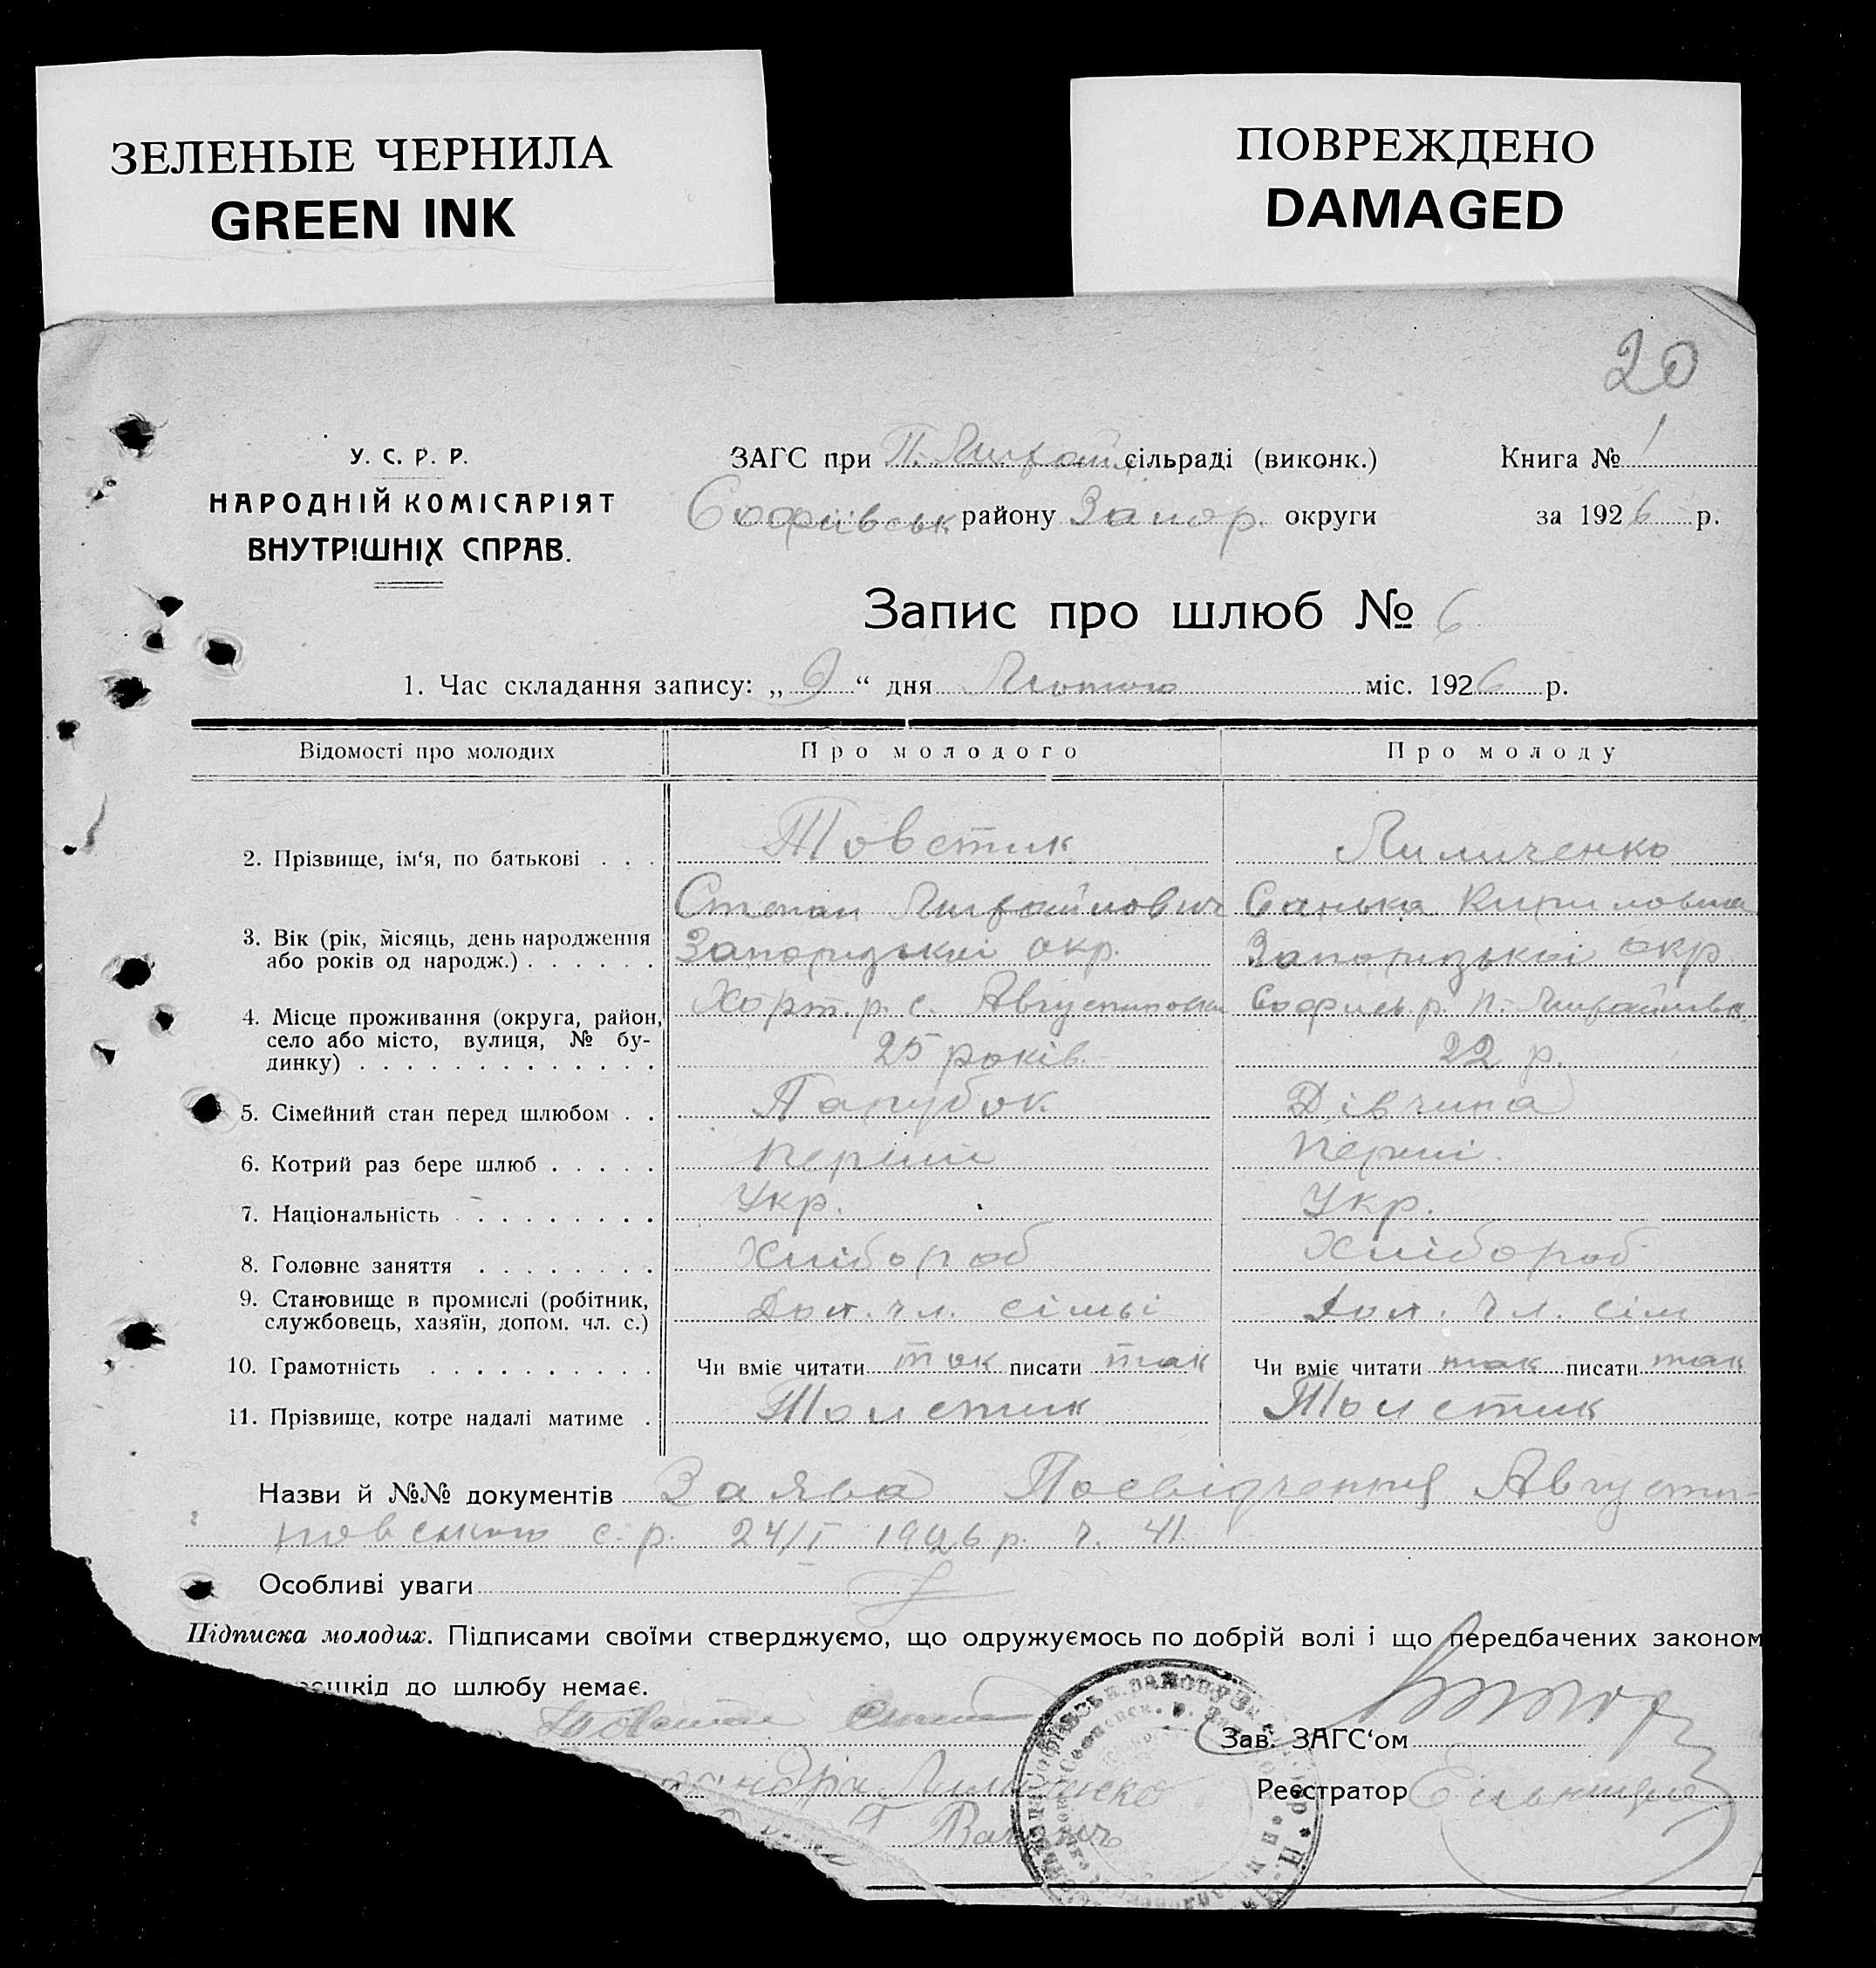 ЗЕЛЕНЫЕ ЧЕРНИЛА
GREEN INK
ПОВРЕЖДЕНО
DAMAGED
20
У. С. Р. Р.
НАРОДНІЙ КОМІСАРІЯТ
ВНУТРІШНІХ СПРАВ.
ЗАГС при П. сільраді (виконк.) Книга № 1
Софіївськ району Запор. округи за 1926 р.
Запис про шлюб № 6
1. Час складання запису: „ 9 “ дня Лютого міс. 1926 р.
Відомості про молодих Про молодого Про молоду
2. Прізвище, ім‘я, по батькові . . . Товстик
Степан Михайлович Санька Кириловна
3. Вік (рік, місяць, день народження
або років од народж.) . . . . . . Запоризької окр. Запоризької окр
Хорт. р. с. Августиновки Софиев. р. П.-Михайлівк.
4. Місце проживання (округа, район,
село або місто, вулиця, № бу-
динку) . . . . . . . . . . . . . 25 років. 22 р.
5. Сімейний стан перед шлюбом . . Парубок Дівчина
6. Котрий раз бере шлюб . . . . . перший перший.
7. Національність . . . . . . . . Укр. Укр.
8. Головне заняття . . . . . . . . Хлібороб Хлібороб
9. Становище в промислі (робітник,
службовець, хазяїн, допом. чл. с.) Доп. чл. сімьї Доп. чл. сім
10. Грамотність . . . . . . . . . . Чи вміє читати так писати так Чи вміє читати так писати так
11. Прізвище, котре надалі матиме . Толстик Толстик
Назви й №№ документів Заява Посвідчення Августи-
новського с. р. 24/I 1926 р. ч. 41.
Особливі уваги
Підписка молодих. Підписами своїми стверджуємо, що одружуємось по добрій волі і що передбачених законом
до шлюбу немає.
Зав. ЗАГС‘ом
Реєстратор